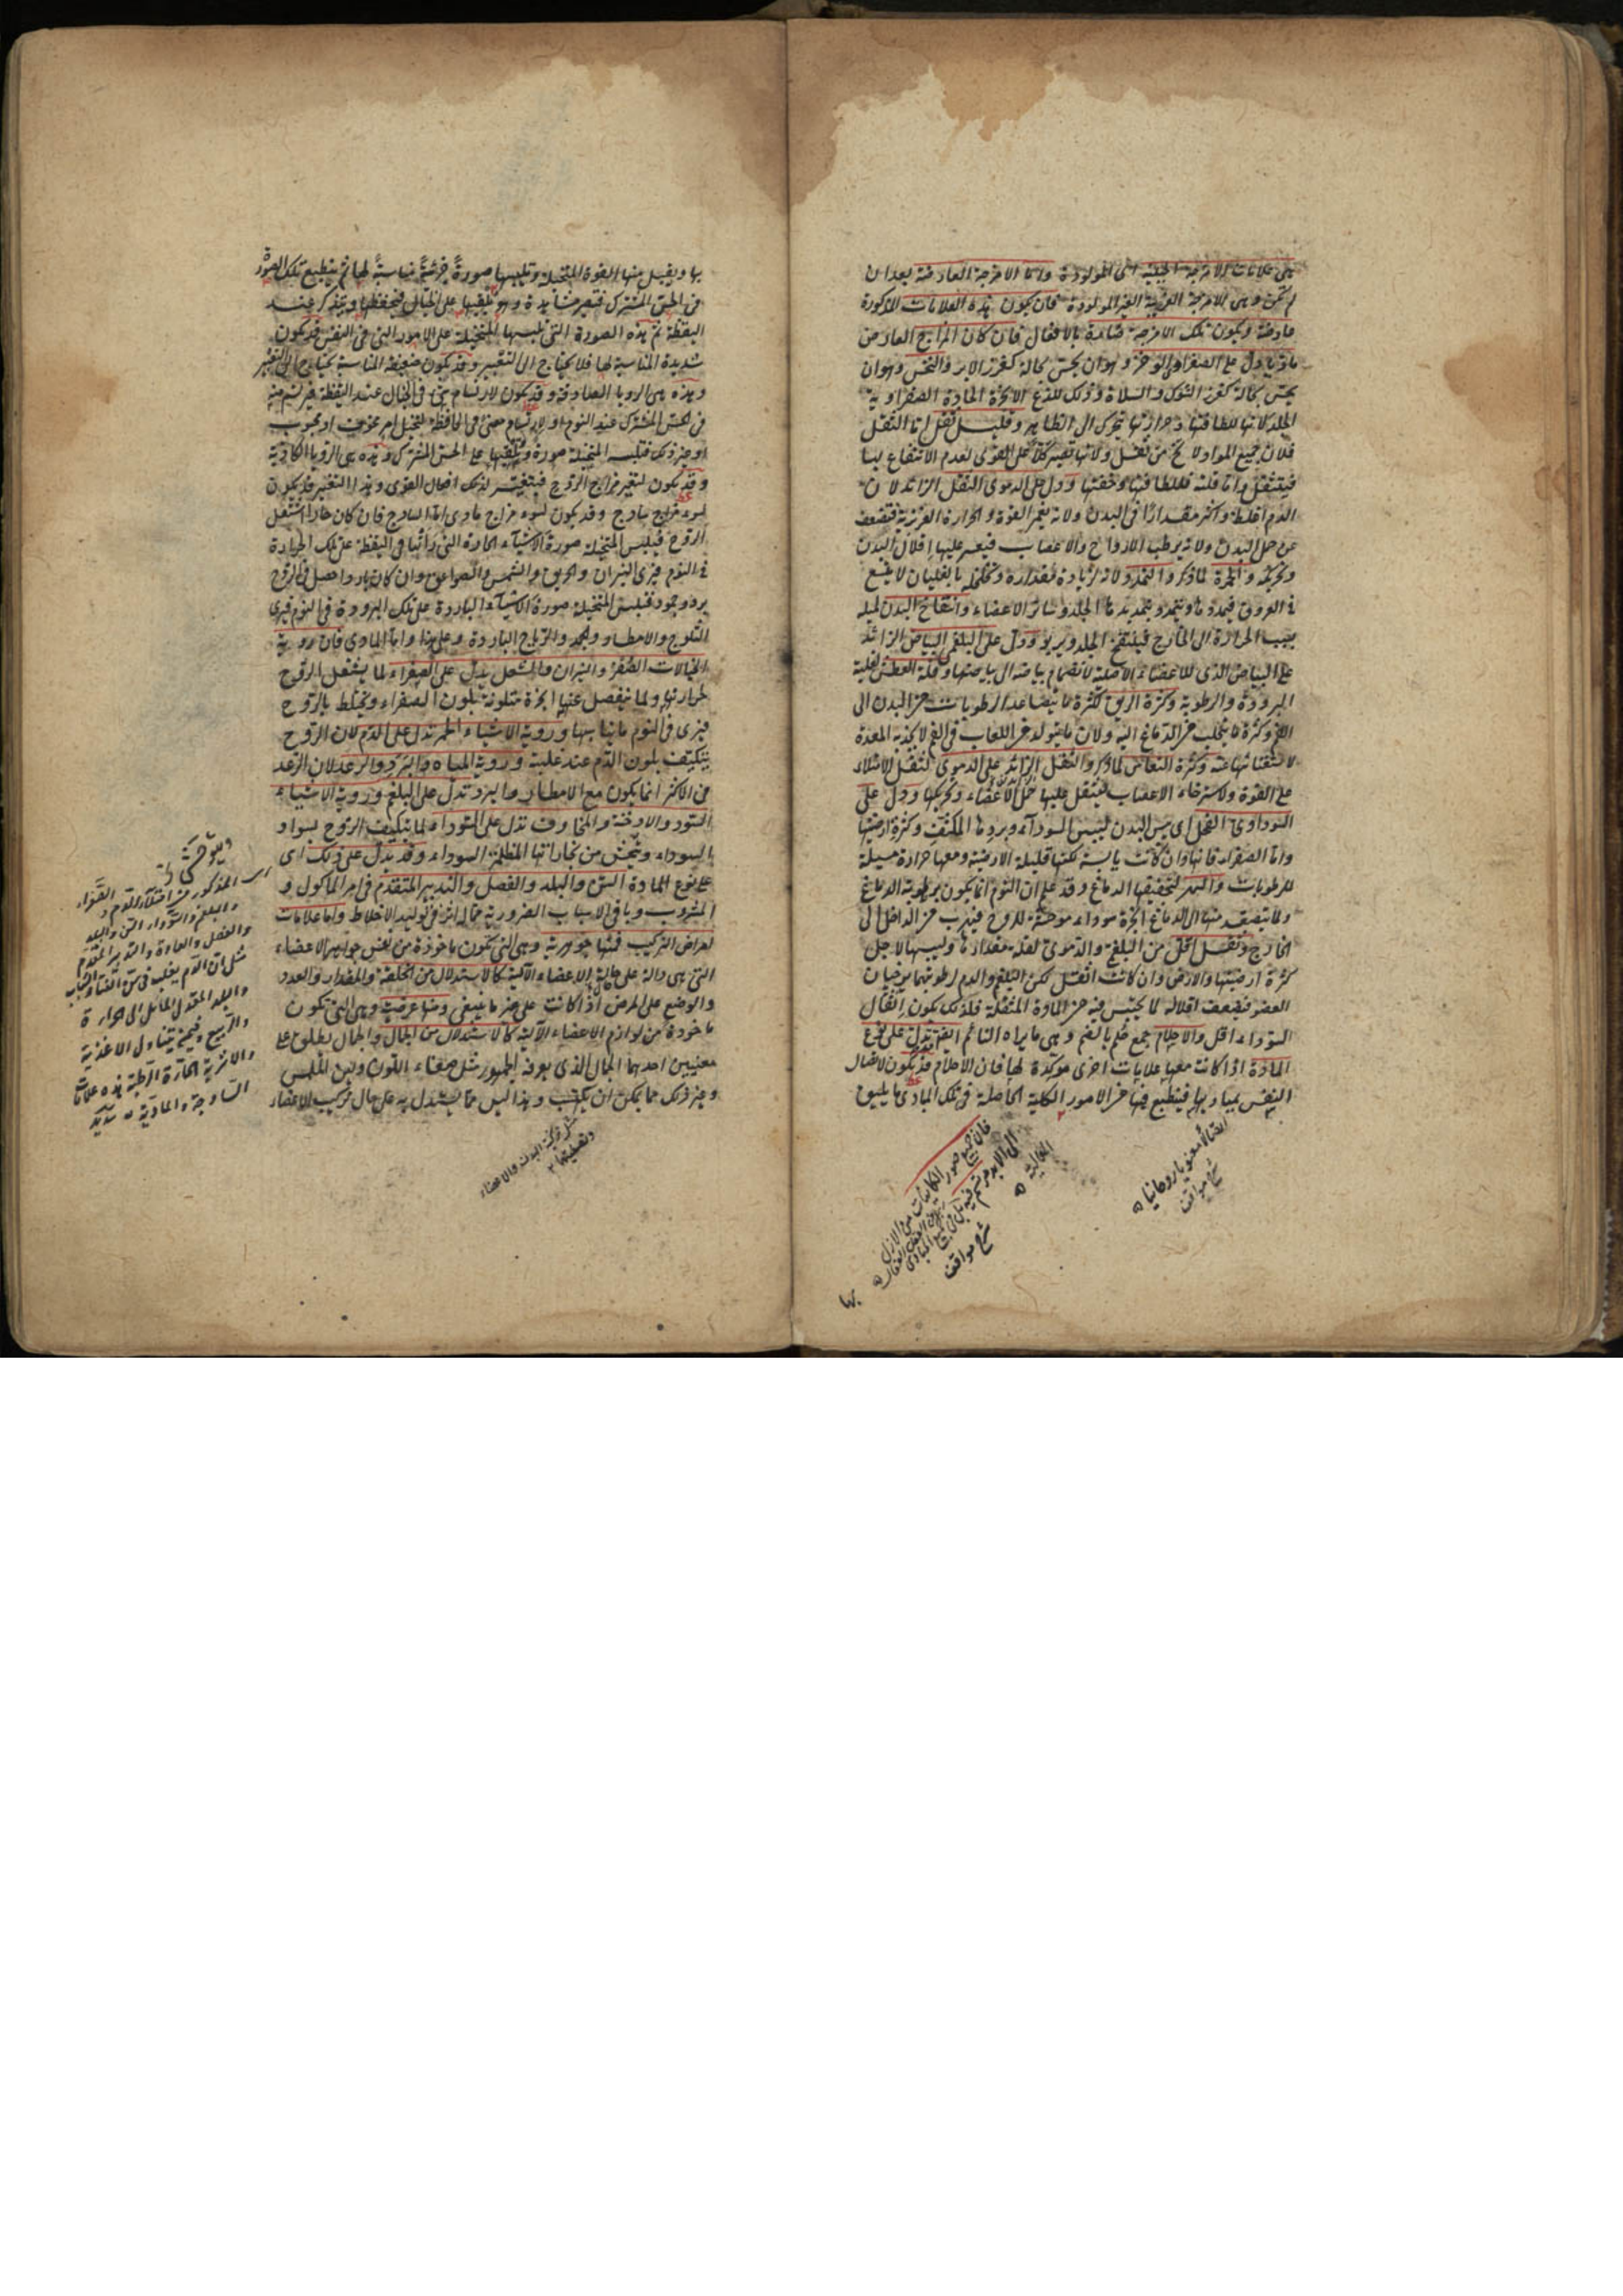 هى علامات الامزجة الجبلية اى المولودة واما الامزجة العارضة بعد ان
لم تكن وهى الامزجة العرضية الغير المولودة فان يكون هذه العلامات المذكورة
عارضة ويكون تلك الامزجة ضارة بالافعال فان كان المزاج العارض
ماديا دل على الصفراوى الوخز وهو ان يحس بحالة كغرز الابر والنخس وهو ان
يحس بحالة كغرز الشوك والسلاة وذلك للذع الابخرة الحادة الصفراوية
الجلد لانها للطافتها وحرارتها تتحرك الى الظاهر وقليل ثقل اما الثقل
فلان جميع المواد لا تخ من ثقل ولانها تصير كلا على القوى لعدم الانتفاع بها
فيستثقل واما قلته فللطافتها وخفتها ودل على الدموى الثقل الزائد لان
الدم اغلظ واكثر مقدارا فى البدن ولانه يغمر القوة والحرارة الغريزية فتضعف
عن حمل البدن ولانه يرطب الارواح والاعصاب فيعسر عليها اقلال البدن
وتحريكه والحمرة لما ذكر والتمدد لانه لزيادة مقداره وتخلخله بالغليان لا يسع
فى العروق فيمددها ويتمدد بتمديدها الجلد وسائر الاعضاء وانتفاخ البدن لميله
بسبب الحرارة الى الخارج فينتفخ الجلد ويربو ودل على البلغمى البياض الزائد
على البياض الذى للاعضاء الاصلية لانضمام بياضه الى بياضها وقلة العطش لغلبة
البرودة والرطوبة وكثرة الريق لكثرة ما يتصاعد الرطوبات من البدن الى
الفم وكثرة ما يتحلب من الدماغ اليه ولان ما يتولد من اللعاب فى الفم لا يجذبه المعدة
لاستغنائها عنه وكثرة النعاس لما ذكر والثقل الزائد على الدموى لثقل الامتلاء
على القوة ولاسترخاء الاعصاب فيثقل عليها حمل الاعضاء وتحريكها ودل على
السوداوى القحل اى يبس البدن ليبس السوداء وبردها المكثف وكثرة ارضيتها
واما الصفراء فانها وان كانت يابسة لكنها قليلة الارضية ومعها حرارة مسيلة
للرطوبات والسهر لتجفيفها الدماغ وقد علم ان النوم انما يكون برطوبة الدماغ
ولما يتصعد منها الى الدماغ ابخرة سوداء موحشة للروح فيهرب من الداخل الى
الخارج وثقل اقل من البلغمى والدموى لقلة مقدارها ويبسها لاجل
كثرة ارضيتها والارض وان كانت اثقل لكن البلغم والدم لرطوبتهما يرخيان
العضو فيضعف اقلاله لما يحتبس فيه من المادة المثقلة فلذلك يكون اثقال
السوداء اقل والاحلام جمع حلم بالضم وهى ما يراه النائم ايضا تدل على نوع
المادة اذا كانت معها علامات اخرى موكدة لها فان الاحلام قد يكون لاتصال
النفس بمباديها فينطبع فيها من الامور الكلية الحاصلة فى تلك المبادى ما يليق
اتصالا معنويا روحانيا
شرح مواقف
فان جميع صور الكائنات من الازل
الى الابد مرتسم فيه بل فى جميع المبادى
العالية
شرح مواقف
بها
بها ويقبل منها القوة المتخيلة وتلبسها صورة جزئية مناسبة لها ثم ينطبع تلك الصورة
فى الحس المشترك فتصير مشاهدة وهو يلقيها على الخيال فيحفظها ويتفكر عند
اليقظة ثم هذه الصورة التى تلبسها المتخيلة على الامور التى فى النفس قد يكون
شديدة المناسبة لها فلا يحتاج الى التعبير وقد يكون ضعيفة المناسبة يحتاج الى التعبير
وهذه هى الرويا الصادقة وقد يكون لارتسام شئ فى الخيال عند اليقظة فيرتسم منه
فى الحس المشترك عند النوم او لارتسام معنى فى الحافظة لتخيل امر مخوف او محبوب
او غير ذلك فتلبسه المتخيلة صورة وتلقيها على الحس المشترك وهذه هى الرويا الكاذبة
وقد يكون لتغير مزاج الروح فيتغير لذلك افعال القوى وهذا التغير قد يكون
لسوء مزاج ساذج وقد يكون لسوء مزاج مادى اما الساذج فان كان حارا اشتعل
الروح فيلبس المتخيلة صورة الاشياء الحارة التى راتها فى اليقظة على تلك الحرارة
فى النوم فيرى النيران والحريق والشمس والصواعق وان كان باردا حصل فى الروح
برد وجمود فتلبس المتخيلة صورة الاشياء الباردة على تلك البرودة فى النوم فيرى
الثلوج والامطار والجمد والرياح الباردة وعلى هذا واما المادى فان روية
الخيالات الصفر والنيران والشعل يدل على الصفراء لما يشعل الروح
لحرارتها ولما ينفصل عنها ابخرة متلونة بلون الصفراء ويختلط بالروح
فيرى فى النوم ما يناسبها وروية الاشياء الحمر تدل على الدم لان الروح
يتكيف بلون الدم عند غلبته وروية المياه والبرد والرعد لان الرعد
فى الاكثر انما يكون مع الامطار والبرد تدل على البلغم وروية الاشياء
السود والادخنة والمخاوف تدل على السوداء لما يتكيف الروح بسواد
السوداء وتوحش من بخاراتها المظلمة السوداء وقد يدل على ذلك اى
على نوع المادة السن والبلد والفصل والتدبير المتقدم فى امر الماكول و
المشروب وباقى الاسباب الضرورية مما له اثر فى توليد الاخلاط واما علامات
امراض التركيب فمنها جوهرية وهى التى تكون ماخوذة من نفس جواهر الاعضاء
التى هى دالة على حالة الاعضاء الآلية كالاستدلال من الخلقة والمقدار والعدد
والوضع على المرض اذا كانت على غير ما ينبغى ومنها عرضية وهى التى تكون
ماخوذة من لوازم الاعضاء الآلية كالاستدلال من الجمال والجمال يطلق على
معنيين احدهما الجمال الذى يعرفه الجمهور مثل صفاء اللون ولين الملمس
وغير ذلك مما يمكن ان يكتسب وهذا ليس مما يستدل به على حال تركيب الاعضاء
اى المذكور من اقتدار الدم والصفراء
والبلغم والسوداء السن والبلد
والفصل والعادة والتدبير المتقدم
مثل ان الدم يغلب فى سن الشباب
والبلد المعتدل المائل الى الحرارة
والربيع وفيمن يتناول الاغذية
والاشربة الحارة الرطبة هذه علامات
الساذجة والمادية سديد